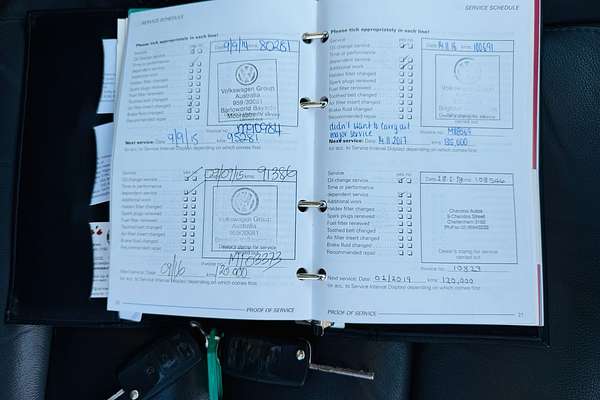 SERVICE SCHEDULE
Please tick appropriately in each line!
Service yes no
Oil change service
Time or performance
dependent service
Additional work
Haldex filter changed
Spark plugs renewed
Fuel filter renewed
Toothed belt changed
Air filter insert changed
Brake fluid changed
Recommended repair
Date 9/9/14 kms 80281
Volkswagen Group
Australia
959/20081
Invoice no.
Next service: Date 9/9/15 kms 95281
for acc. to Service Interval Display) depending on which comes first
Service yes no
Oil change service
Time or performance
dependent service
Additional work
Haldex filter changed
Spark plugs renewed
Fuel filter renewed
Toothed belt changed
Air filter insert changed
Brake fluid changed
Recommended repair
02/07/15 kms 91386
Volkswagen Group
Australia
959/20081
Dealer's stamp for service
Invoice no.
Next service: Date 09/16 kms 120,000
for acc. to Service Interval Display) depending on which comes first
20 PROOF OF SERVICE
SERVICE SCHEDULE
Please tick appropriately in each line!
Service yes no
Oil change service
Time or performance
dependent service
Additional work
Haldex filter changed
Spark plugs renewed
Fuel filter renewed
Toothed belt changed
Air filter insert changed
Brake fluid changed
Recommended repair
Date 14.11.16 kms 100691
carried out
Invoice no.
didn't want to carry out
major service
Next service: Date 14.11.2017 kms
for acc. to Service Interval Display) depending on which comes first
Service yes no
Oil change service
Time or performance
dependent service
Additional work
Haldex filter changed
Spark plugs renewed
Fuel filter renewed
Toothed belt changed
Air filter insert changed
Brake fluid changed
Recommended repair
Charades Autos
Cheltenham 3192
Dealer's stamp for service
carried out
Invoice no. 10829
Next service: Date 02/2019 kms 120,000
for acc. to Service Interval Display) depending on which comes first
PROOF OF SERVICE 21